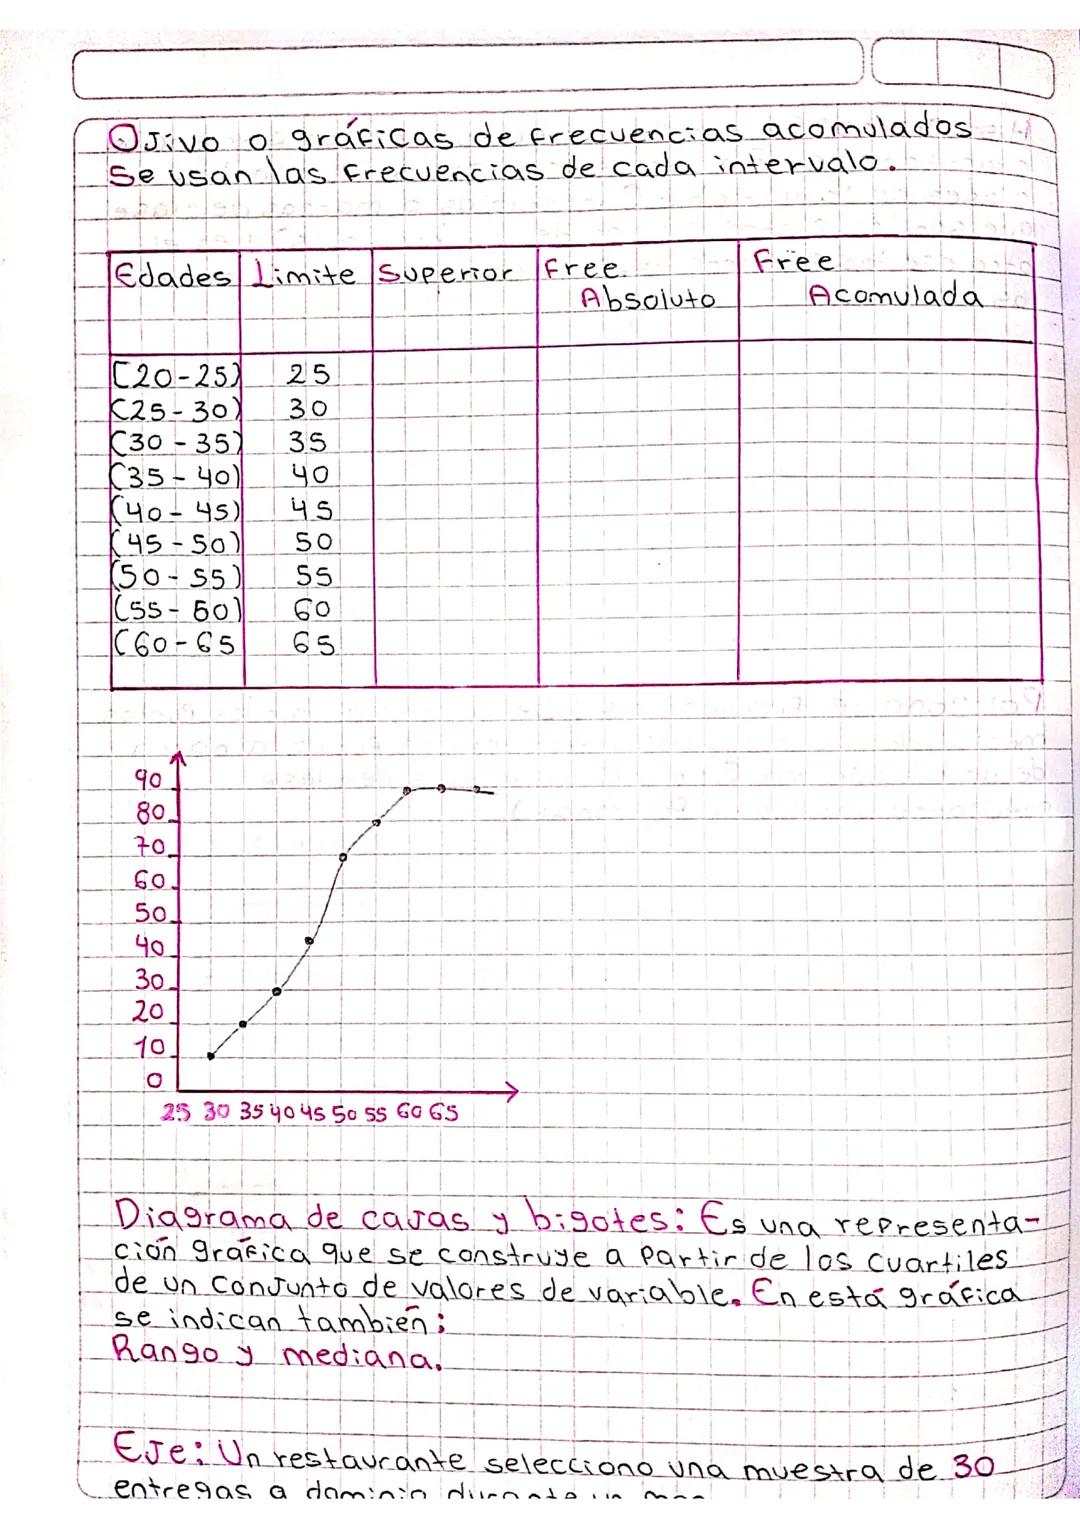 OJivo o gráficas de frecuencias acomulados
Se usan las frecuencias de cada intervalo.
Edades Limite Superior Free Absoluto Free Acomulada
[20-25) 25
(25-30) 30
(30-35) 35
(35-40) 40
(40-45) 45
(45-50) 50
(50-55) 55
(55-60) 60
(60-65 65
90
80
70
60
50
40
30
20
10
0
25 30 35 40 45 50 55 60 65
Diagrama de caJas y bigotes: Es una representa-
ción gráfica que se construye a partir de los cuartiles
de un conJunto de valores de variable. En está gráfica
se indican también:
Rango y mediana.
EJe: Un restaurante selecciono una muestra de 30
entregas a dominio durante un